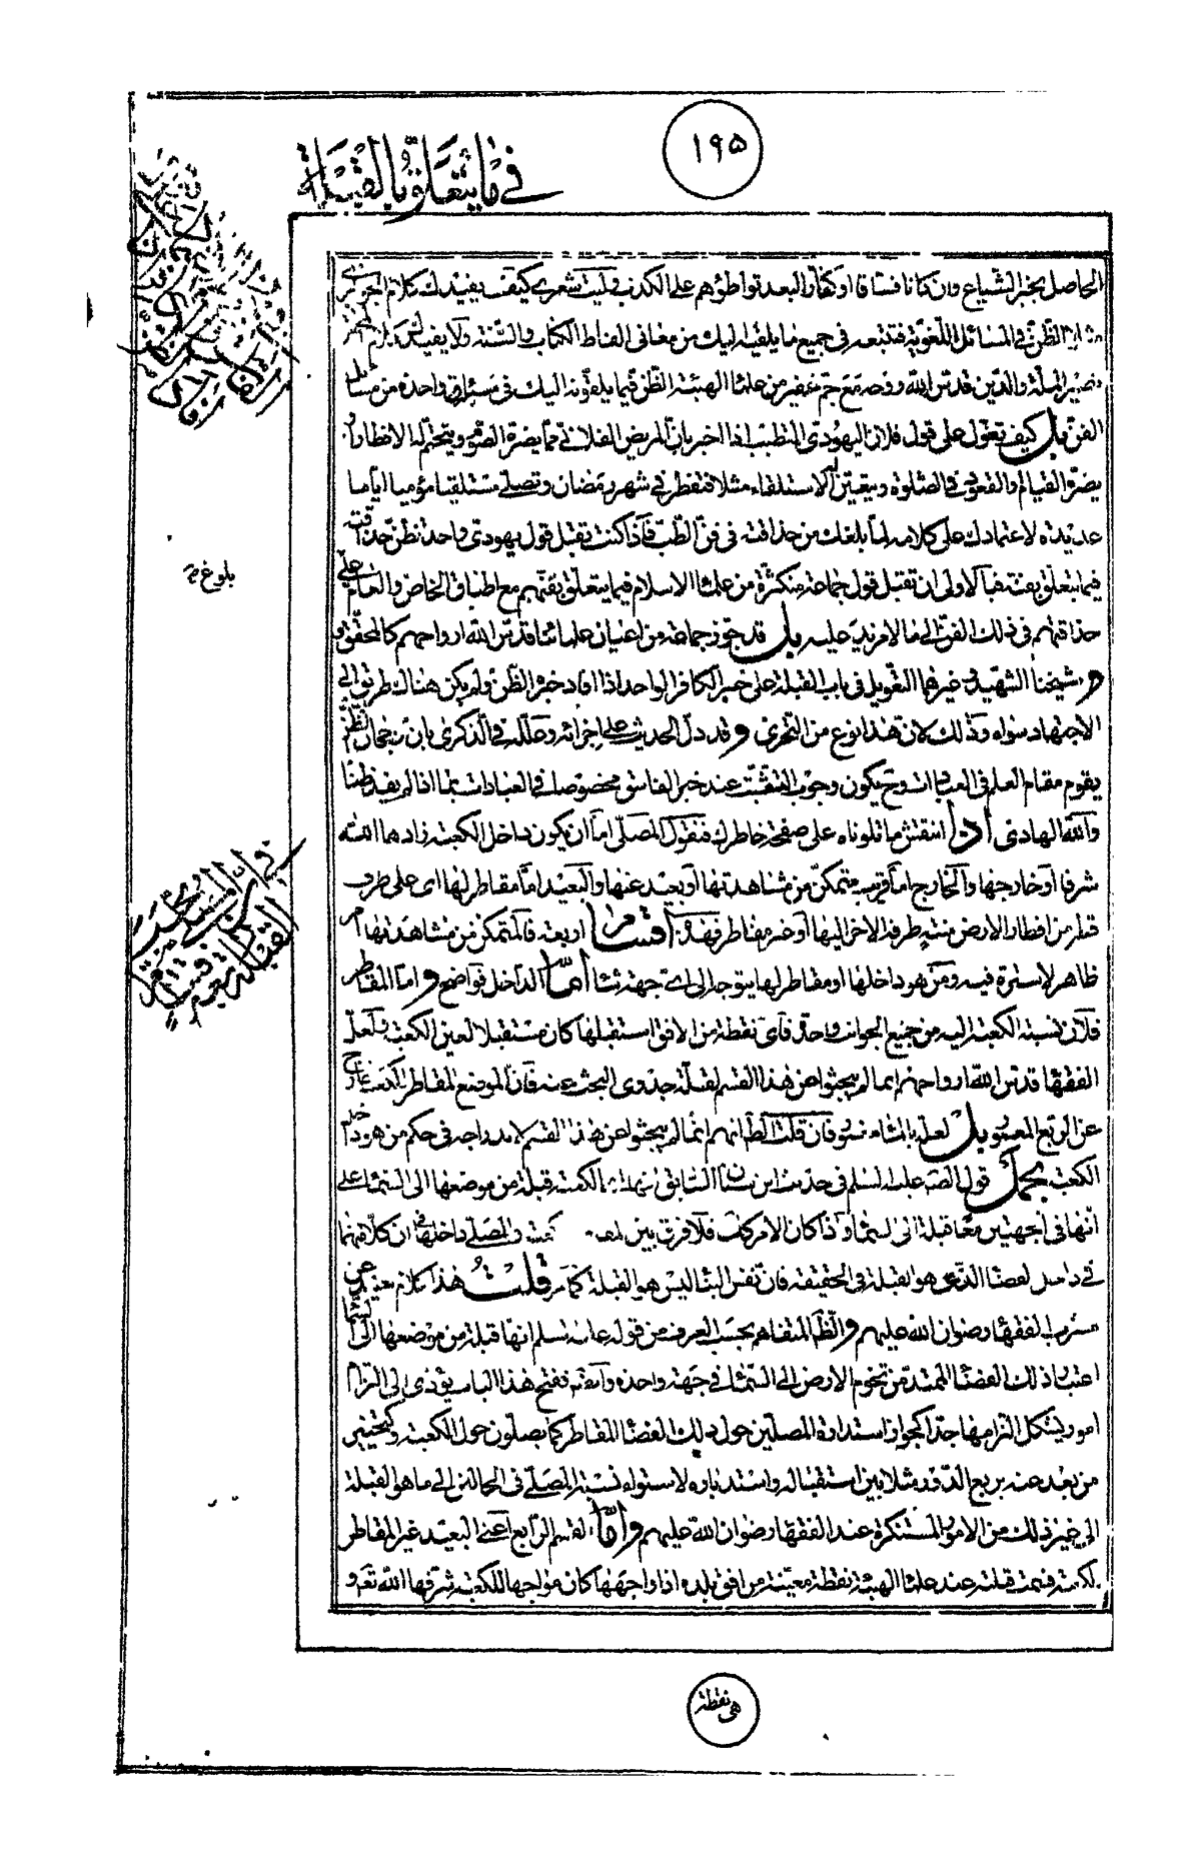 ١٩۵
في ما يتعلق بالقبلة
الحاصل بخبر الشياع وان كانوا فساقا او كفارا لبعد تواطؤهم على الكذب وليت شعري كيف يفيدك كلام الجوهري
الظن في المسائل اللغوية فتتبعه في جميع ما يلقيه اليك من معاني الفاظ الكتاب والسنة ولا يفيدك كلام
نصير الملة والدين قدس الله روحه مع جم غفير من علماء الهيئة الظن فيما يلقونه اليك في مسئلة واحدة من مسائل
الفن بل كيف تعول على قول فلان اليهودي المتطبب اذا اخبر بان المرض الفلاني مما يضره الصوم ويتحتم له الافطار او
يضره القيام والقعود في الصلوة ويتعين له الاستلقاء مثلا فتفطر في شهر رمضان وتصلي مستلقيا مؤميا اياما
عديدة لاعتمادك على كلامه لما بلغك من حذاقته في فن الطب فاذا كنت تقبل قول يهودي واحد تظن حذاقته
فيما يتعلق بفنه فبالاولى ان تقبل قول جماعة متكثرة من علماء الاسلام فيما يتعلق بفنهم مع اطباق الخاص والعام على
حذاقتهم في ذلك الفن الى ما لا مزيد عليه بل قد جوز جماعة من اعيان علمائنا قدس الله ارواحهم كالمحقق و
شيخنا الشهيد وغيرهما التعويل في باب القبلة على خبر الكافر الواحد اذا افاد خبره الظن ولم يكن هناك طريق الى
الاجتهاد سواه وذلك لان هذا نوع من التحري وقد دل الحديث على اجزائه وعلله في الذكرى بان رجحان الظن
يقوم مقام العلم في العبادات وح يكون وجوب التثبت عند خبر الفاسق مخصوصا في العبادات بما اذا لم يفد ظنا
والله الهادي اذا انتقش ما تلوناه على صفحة خاطرك فنقول المصلي اما ان يكون داخل الكعبة زادها الله
شرفا او خارجها والخارج اما قريب متمكن من مشاهدتها او بعيد عنها والبعيد اما مقاطر لها اي على طرف
قطر من اقطار الارض منته طرفه الاخر اليها او غير مقاطر فهذه اقسام اربعة فالمتمكن من مشاهدتها امره
ظاهر لا سترة فيه ومن هو داخلها او مقاطر لها يتوجه الى اي جهة شاء اما الداخل فواضح واما المقاطر
فلان نسبة الكعبة اليه من جميع الجوانب واحدة فاي نقطة من الافق استقبلها كان مستقبلا لعين الكعبة ولعل
الفقهاء قدس الله ارواحهم انما لم يبحثوا عن هذا القسم لقلة جدوى البحث عنه فان الموضع المقاطر للكعبة خارج
عن الربع المعمور بل لعله بالماء مغمور فان قلت الظ انهم انما لم يبحثوا عن هذا القسم لاندراجه في حكم من هو داخل
الكعبة بحمل قول الصه عليه السلم في حديث ابن سنان السابق انها اي الكعبة قبلة من موضعها الى السماء على
انها في الجهتين معا قبلة الى السماء واذا كان الامر كك فلا فرق بين والمصلي داخلها في ان كلا منهما
في داخل الفضاء الذي هو القبلة في الحقيقة فان نفس البناء ليس هو القبلة كما مر قلت هذا كلام بعيد عن
مشرب الفقهاء رضوان الله عليهم والظ المتفاهم بحسب العرف من قوله عليه السلم انها قبلة من موضعها الى السماء
اعتبار ذلك الفضاء الممتد من تخوم الارض الى السماء في جهة واحدة وايضا ففتح هذا الباب يؤدي الى التزام
امور يشكل التزامها جدا كجواز استدارة المصلين حول ذلك الفضاء المقاطر كما يصلون حول الكعبة وكتخيير
من بعد عنه بربع الدور مثلا بين استقباله واستدباره لاستواء نسبة المصلي في الحالين الى ما هو القبلة
الى غير ذلك من الامور المستنكرة عند الفقهاء رضوان الله عليهم واما القسم الرابع اعني البعيد غير المقاطر
للكعبة فسمت قبلته عند علماء الهيئة نقطة معينة من افق بلده اذا واجهها كان مواجها للكعبة شرفها الله تعه و
بلوغ
هي نقطة